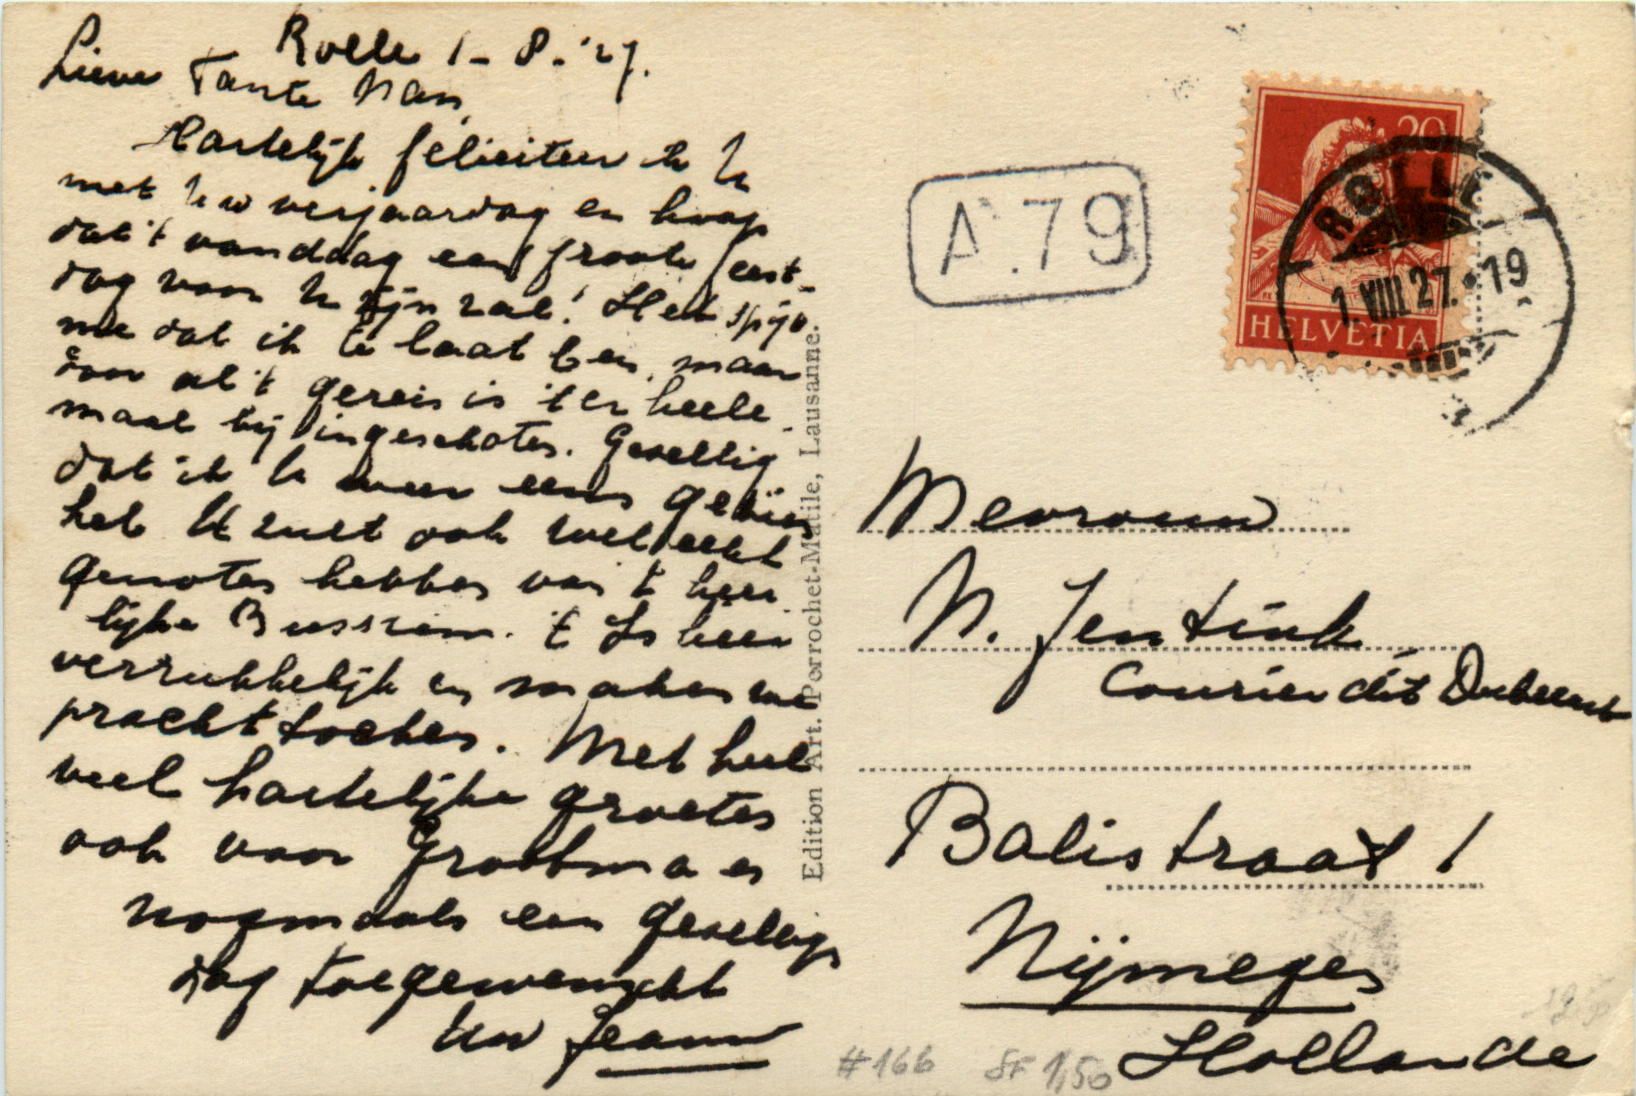 Rolle 1-8-'27.
Lieve Tante Nan,
Hartelijk feliciteer ik U
met Uw verjaardag en hoop
dat 't vanddag een groote feest-
dag voor U zijn zal! Het spijt
me dat ik te laat ben, maar
door al 't gereis is 't er heele-
maal bij ingeschoten. Gezellig
dat ik U weer eens gezien
heb U zult ook wel echt
genoten hebben van 't heer
lijke Bussum. 't Is hier
verrukkelijk en maken we
prachttochten. Met heel
veel hartelijke groeten
ook voor Grootma en
nogmaals een gezellige
dag toegewenscht
Uw Jeanne
Edition Art. Perrochet-Matile, Lausanne.
A.79
20
HELVETIA
ROLLE
1.VIII.27.-19
Mevrouw
N. Jentink
Balistraat 1
Nijmegen
Hollande
#166 SF 1,50